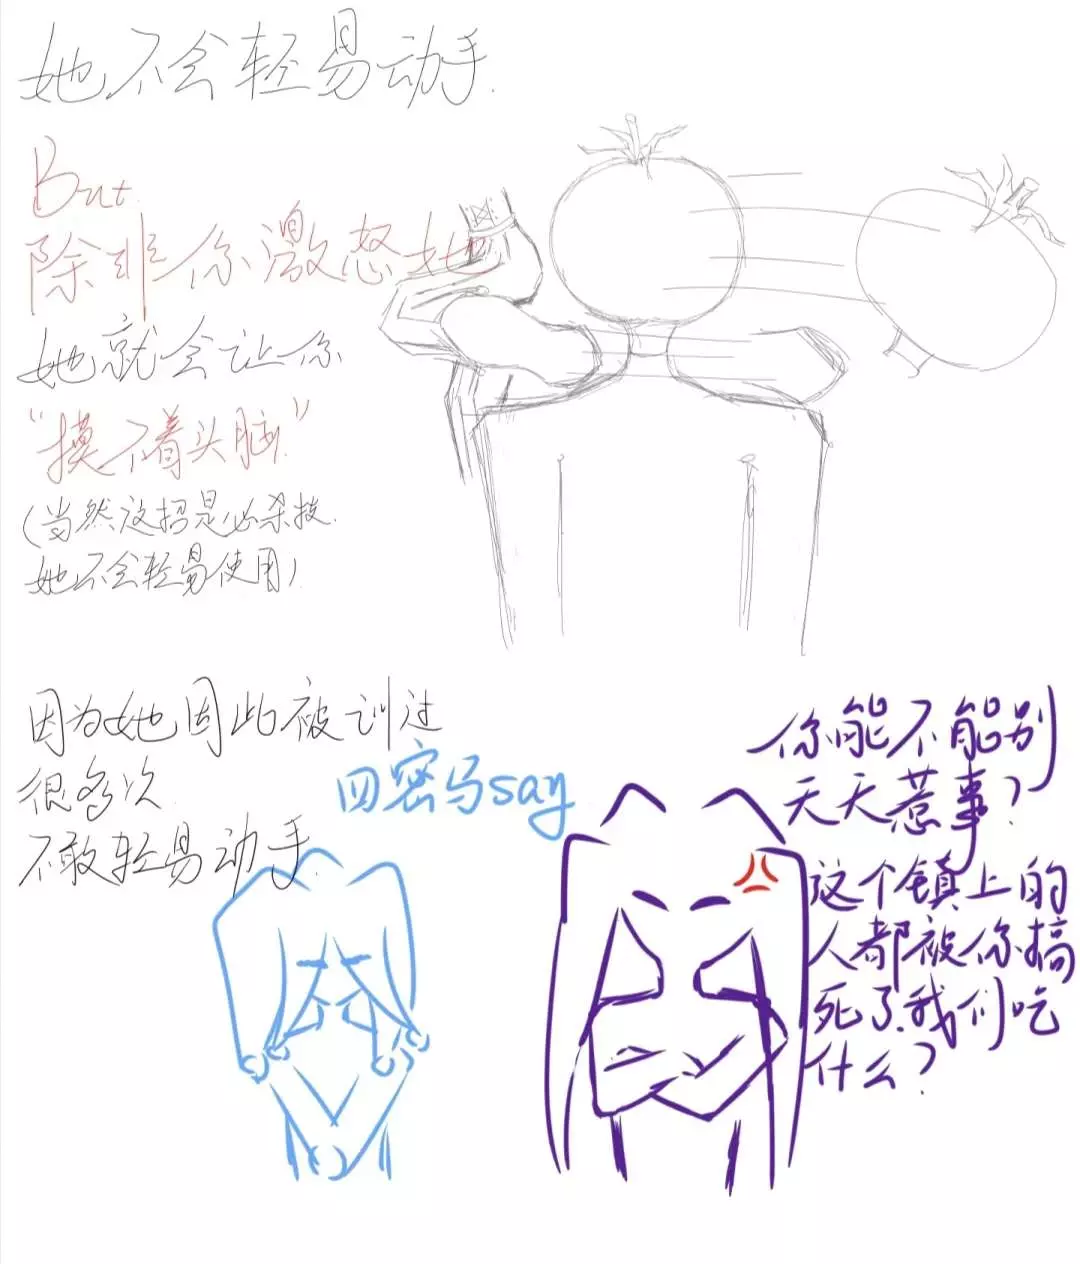 她不会轻易动手.
But.
除非你激怒她
她就会让你
“摸不着头脑”
(当然这招是必杀技.
她不会轻易使用)
因为她因此被训过
很多次
不敢轻易动手.
四密马say
你能不能别
天天惹事?
这个镇上的
人都被你搞
死了.我们吃
什么?